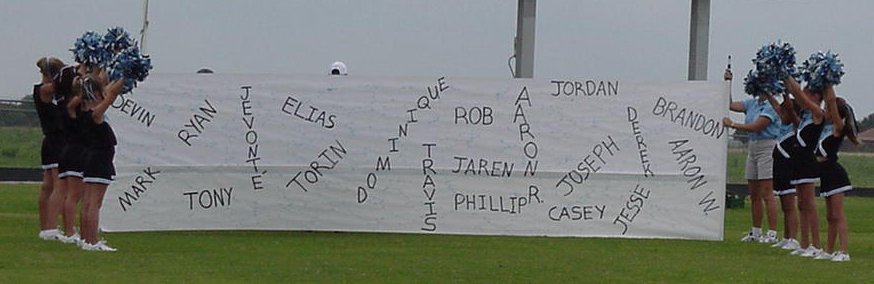 DEVIN
MARK
RYAN
TONY
JEVONTÉ
ELIAS
TORIN
DOMINIQUE
TRAVIS
ROB
JAREN
PHILLIP
AARON R.
JORDAN
JOSEPH
CASEY
DEREK
JESSE
BRANDON
AARON W.